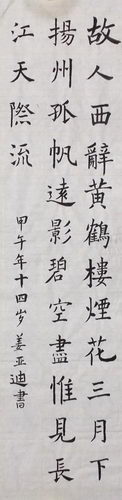 故人西辭黃鶴樓煙花三月下
揚州孤帆遠影碧空盡惟見長
江天際流
甲午年十四岁姜亚迪書